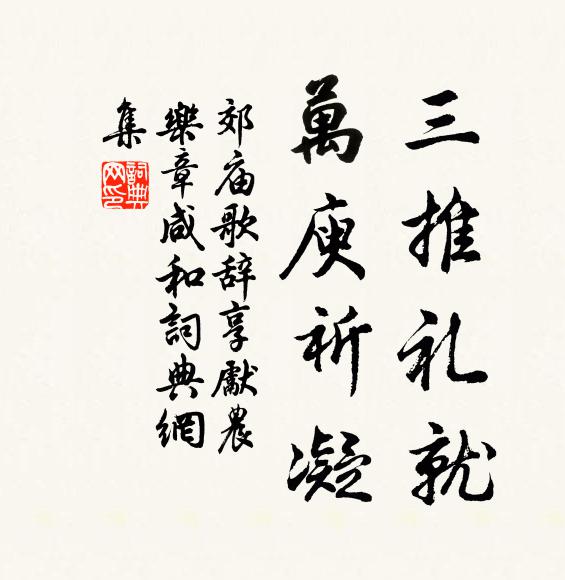 三推礼就
萬庾祈凝
郊庙歌辞享獻農
樂章咸和詞典網
集
詞典
网印